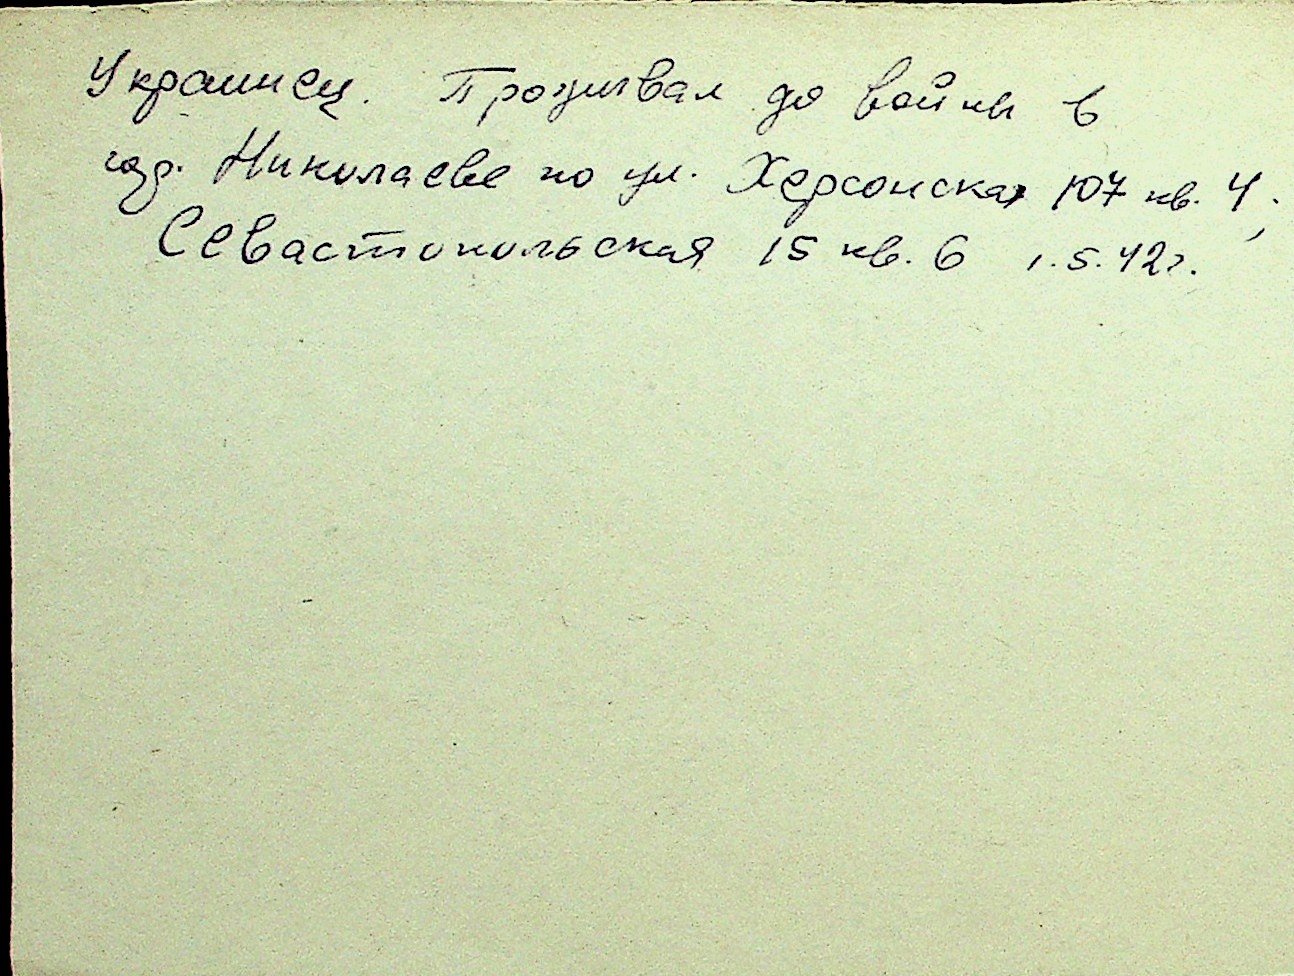 Украинец. Проживал до войны в
гор. Николаеве по ул. Херсонская 107 кв. 4;
Севастопольская 15 кв. 6 1.5.42г.